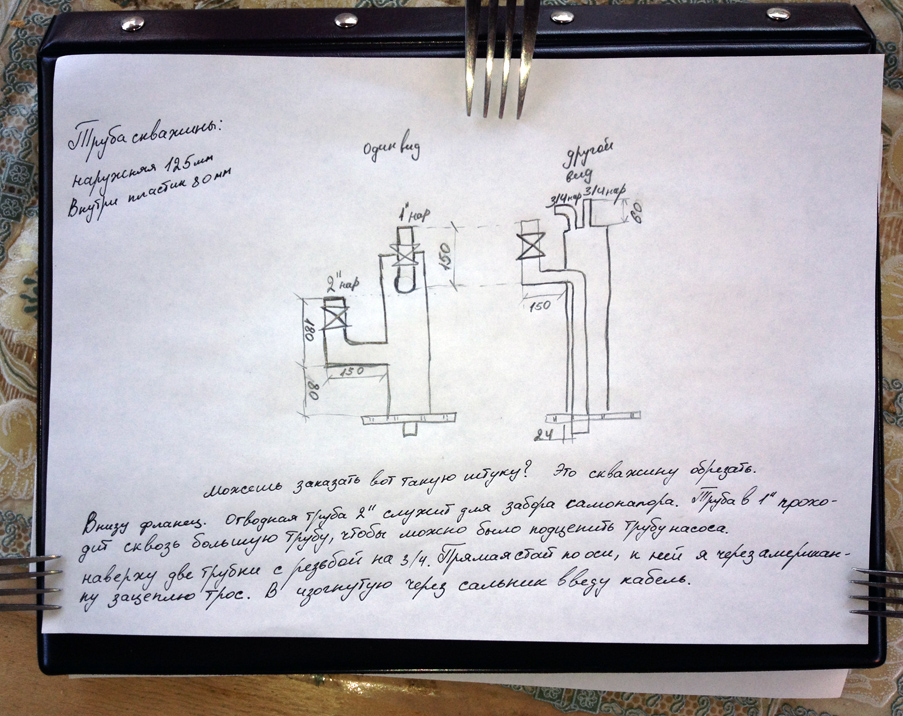 Труба скважины:
наружняя 125мм
Внутри пластик 80мм
один вид
другой
вид
3/4 нар 3/4 нар
60
1" нар
150
2" нар
180
150
80
150
24
Можешь заказать вот такую штуку? Это скважину обрезать.
Внизу фланец. Отводная труба 2" служит для забора самонапора. Труба в 1" прохо-
дит сквозь большую трубу, чтобы можно было подцепить трубу насоса.
наверху две трубки с резьбой на 3/4. Прямая стоит по оси, к ней я через американ-
ку зацеплю трос. В изогнутую через сальник введу кабель.